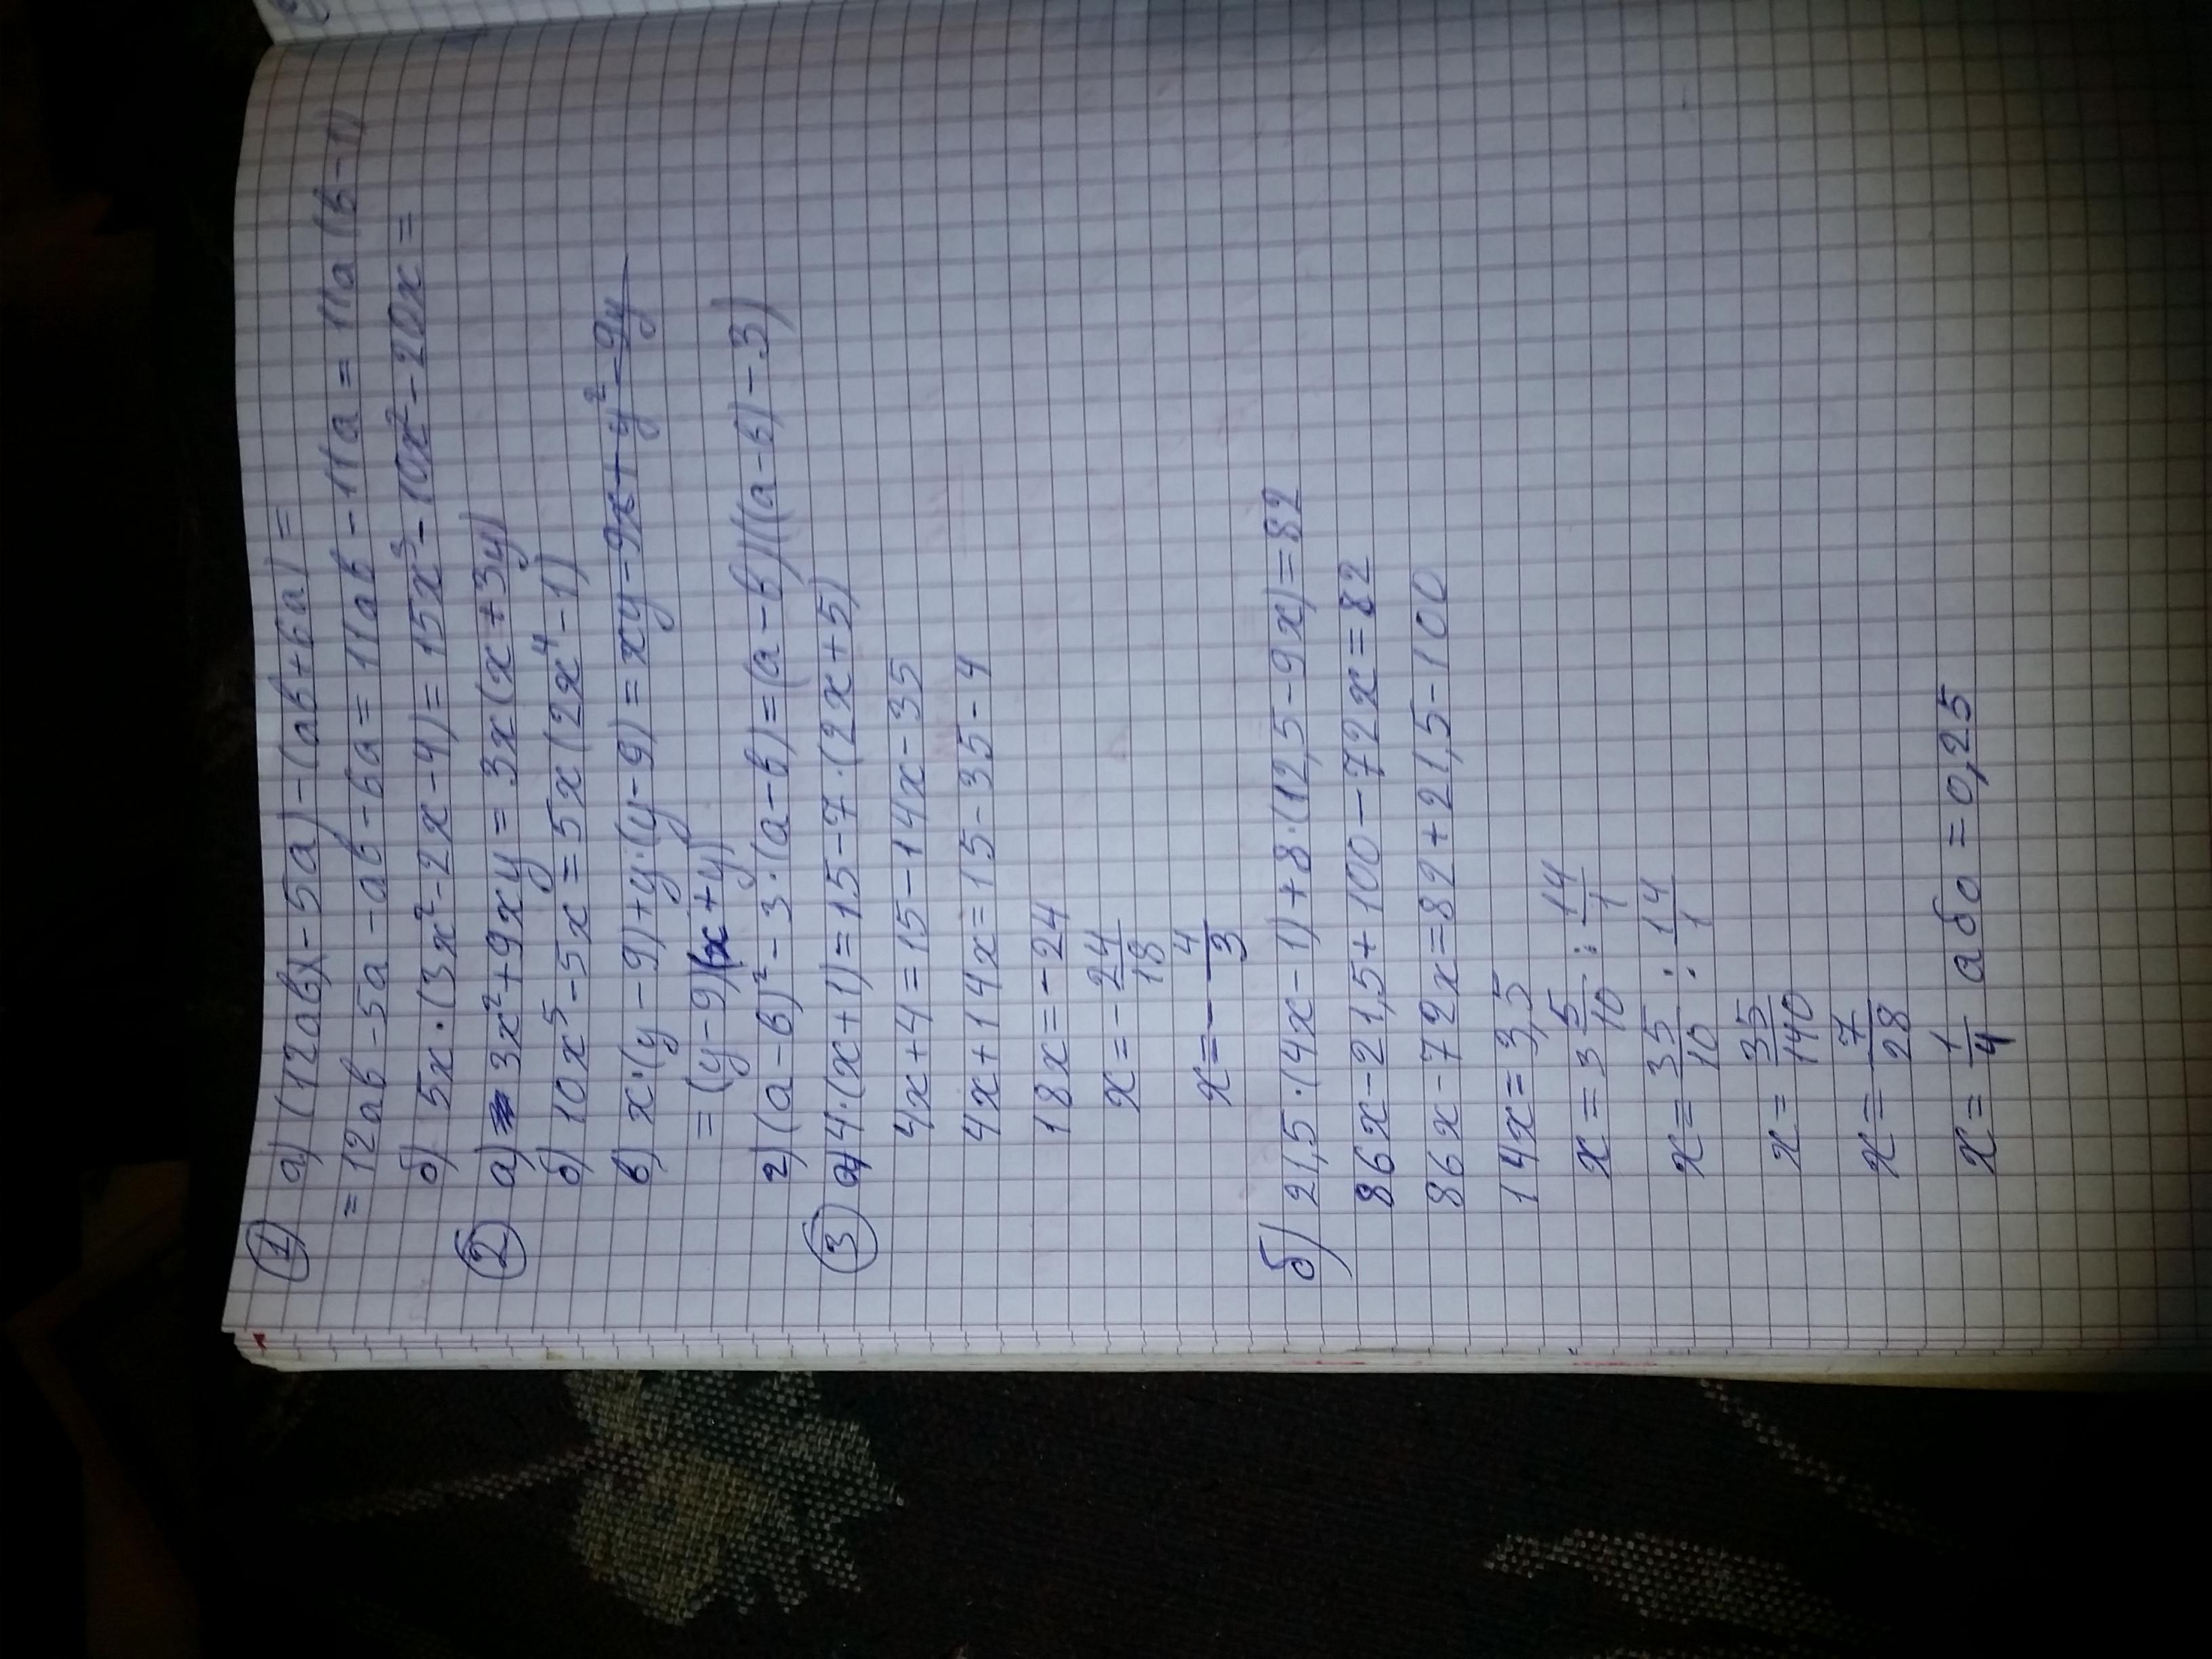 1) а) (12ab)-5a)-(ab+6a)=
=12ab-5a-ab-6a=11ab-11a=11a(b-1)
б) 5x·(3x²-2x-4)=15x³-10x²-20x=
2) а) 3x²+9xy=3x(x+3y)
б) 10x⁵-5x=5x(2x⁴-1)
в) x·(y-9)+y·(y-9)=xy-9x+y²-9y
=(y-9)(x+y)
г) (a-b)²-3·(a-b)=(a-b)((a-b)-3)
3) а) 4·(x+1)=15-7·(2x+5)
4x+4=15-14x-35
4x+14x=15-35-4
18x=-24
x=-24/18
x=-4/3
б) 21,5·(4x-1)+8·(12,5-9x)=82
86x-21,5+100-72x=82
86x-72x=82+21,5-100
14x=3,5
x=3 5/10 : 14/1
x=35/10 : 14/1
x=35/140
x=7/28
x=1/4 або =0,25